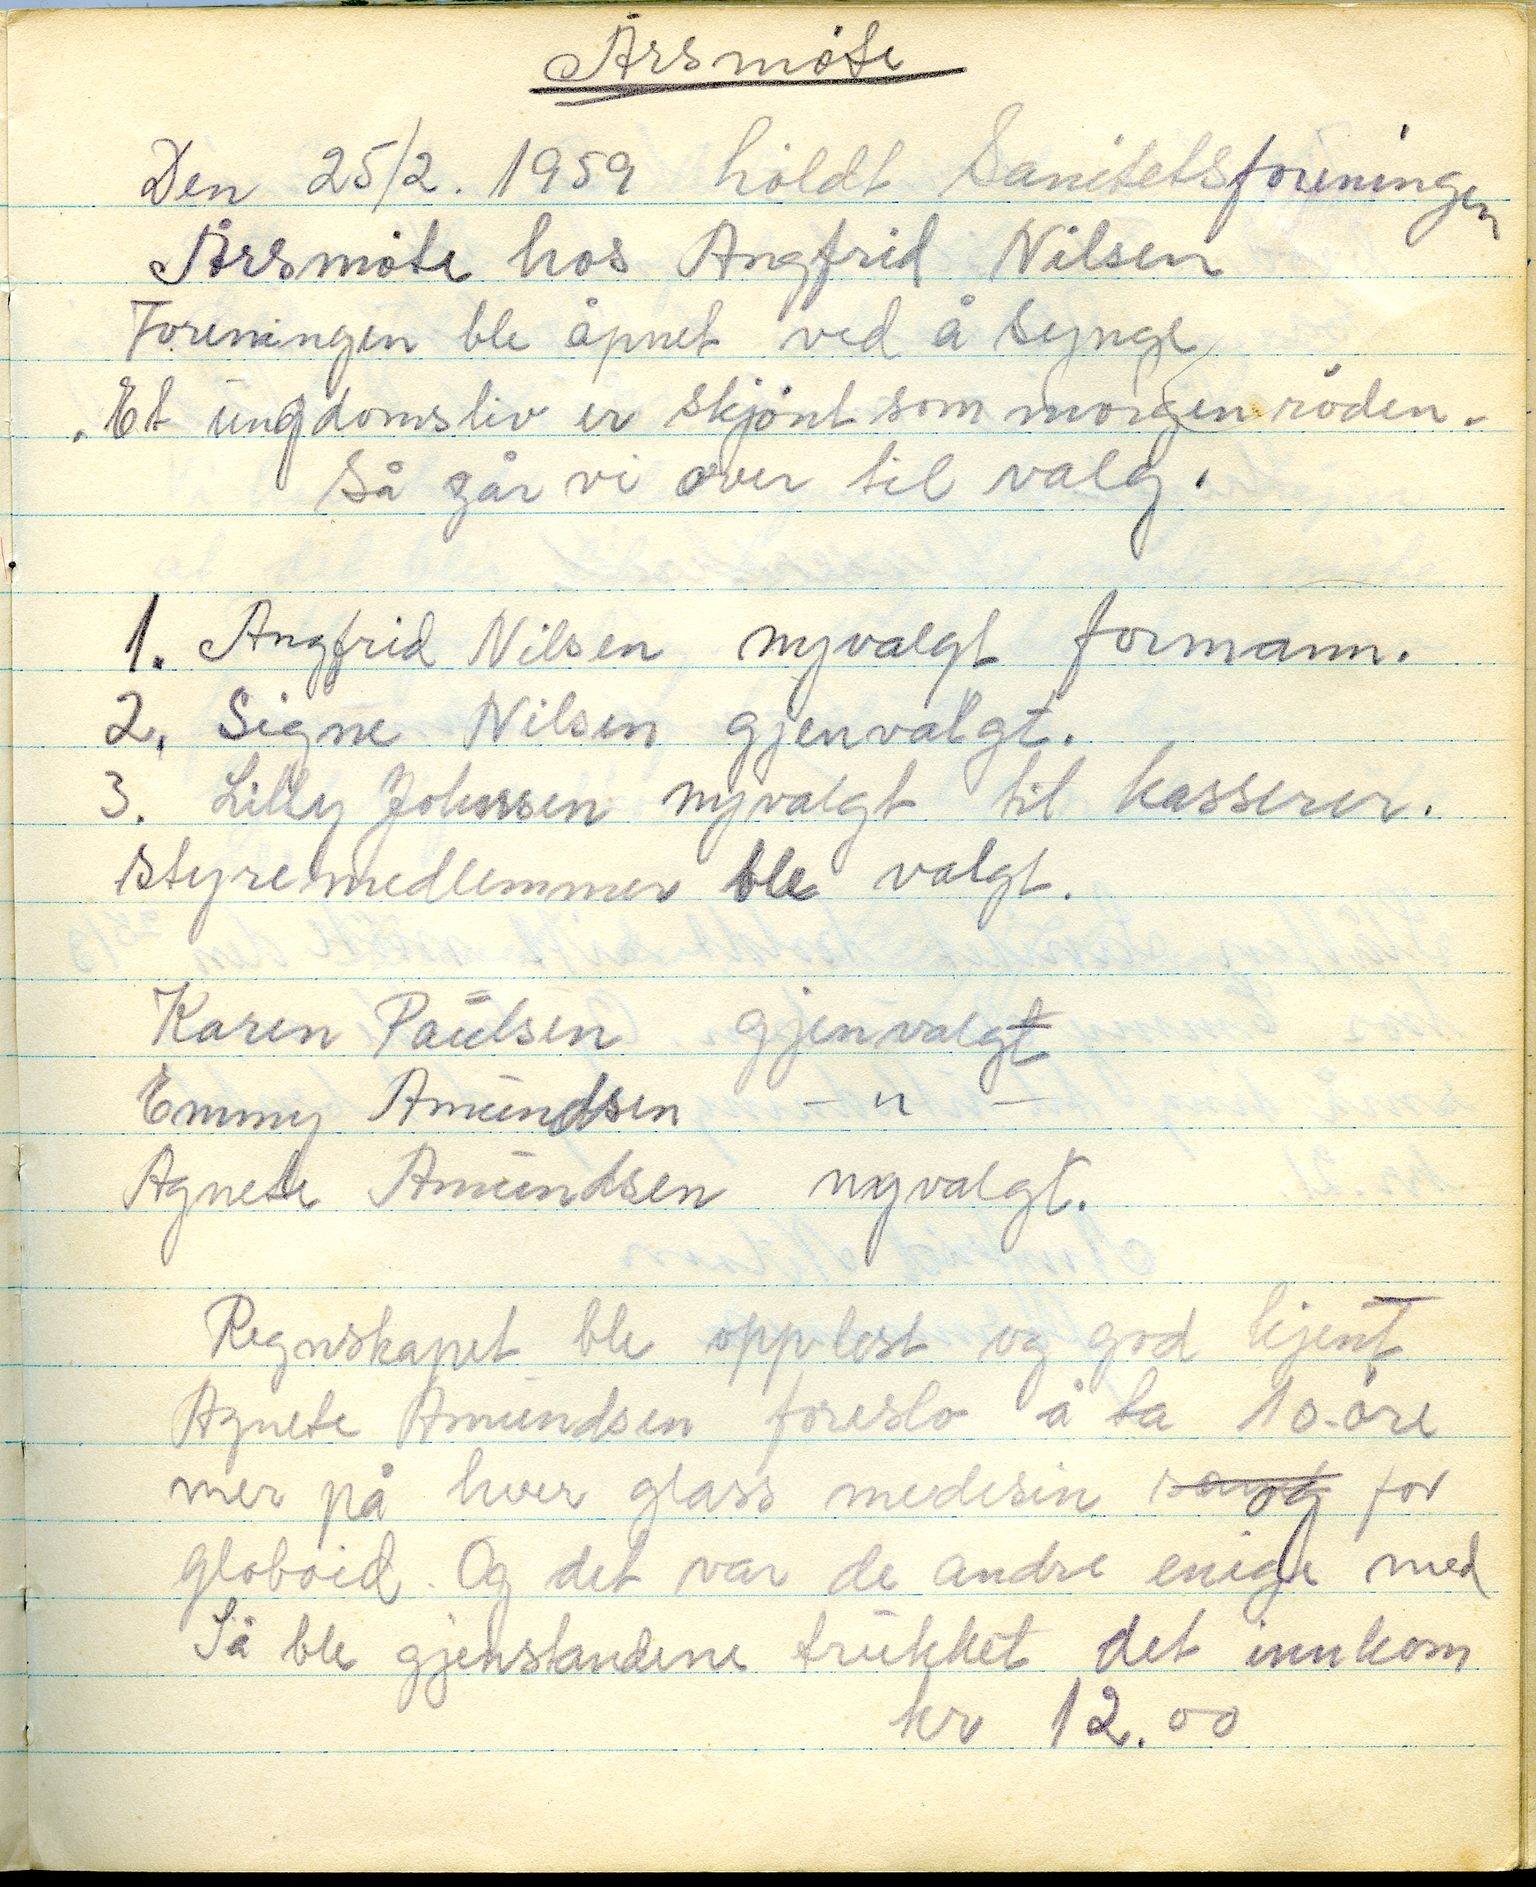 Årsmøte
Den 25/2. 1959 holdt Sanitetsforeningen
Årsmøte hos Angfrid Nilsen
Foreningen ble åpnet ved å synge
"Et ungdomsliv er skjønt som morgenrøden.
Så går vi over til valg.
1. Angfrid Nilsen nyvalgt formann.
2. Signe Nilsen gjenvalgt.
3. Lilly Johnsen nyvalgt til kasserer.
styremedlemmer ble valgt.
Karen Paulsen gjenvalgt
Emmy Amundsen — " —
Agnete Amundsen nyvalgt.
Regnskapet ble opplest og god kjent
Agnete Amundsen foreslo å ta 10-øre
mer på hver glass medesin og for
globoid. Og det var de andre enige med
Så ble gjenstandene trukket det innkom
kr 12.00